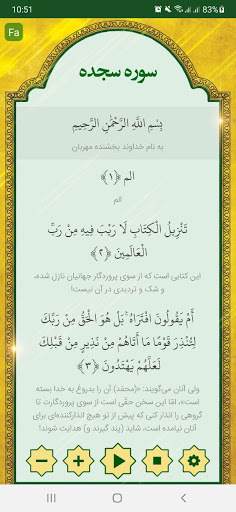 10:51
83%
Fa
سوره سجده
بِسْمِ اللَّهِ الرَّحْمَٰنِ الرَّحِيمِ
به نام خداوند بخشنده مهربان
الم ﴿١﴾
الم
تَنْزِيلُ الْكِتَابِ لَا رَيْبَ فِيهِ مِنْ رَبِّ
الْعَالَمِينَ ﴿٢﴾
این کتابی است که از سوی پروردگار جهانیان نازل شده،
و شک و تردیدی در آن نیست!
أَمْ يَقُولُونَ افْتَرَاهُ ۚ بَلْ هُوَ الْحَقُّ مِنْ رَبِّكَ
لِتُنْذِرَ قَوْمًا مَا أَتَاهُمْ مِنْ نَذِيرٍ مِنْ قَبْلِكَ
لَعَلَّهُمْ يَهْتَدُونَ ﴿٣﴾
ولی آنان می‌گویند: «(محمّد) آن را بدروغ به خدا بسته
است»، امّا این سخن حقّی است از سوی پروردگارت تا
گروهی را انذار کنی که پیش از تو هیچ انذارکننده‌ای برای
آنان نیامده است، شاید (پند گیرند و) هدایت شوند!